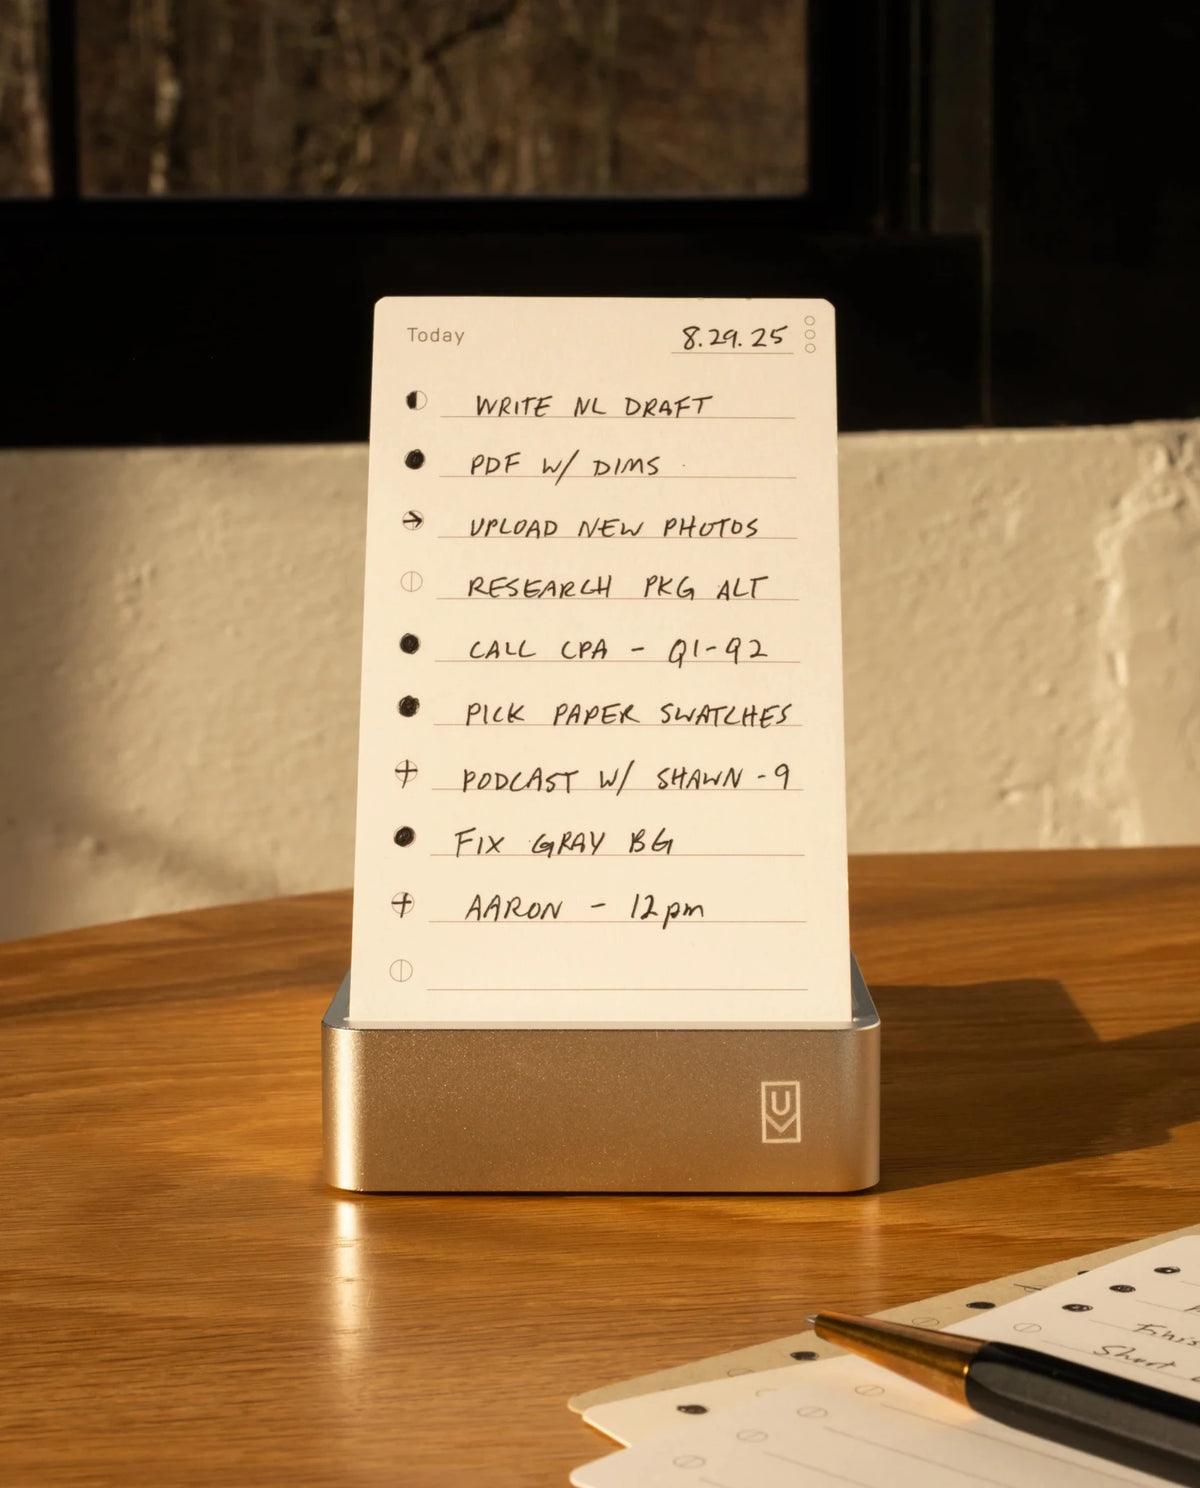 Today 8.29.25
WRITE NL DRAFT
PDF W/ DIMS
UPLOAD NEW PHOTOS
RESEARCH PKG ALT
CALL CPA - Q1-Q2
PICK PAPER SWATCHES
PODCAST W/ SHAWN - 9
FIX GRAY BG
AARON - 12pm
Short